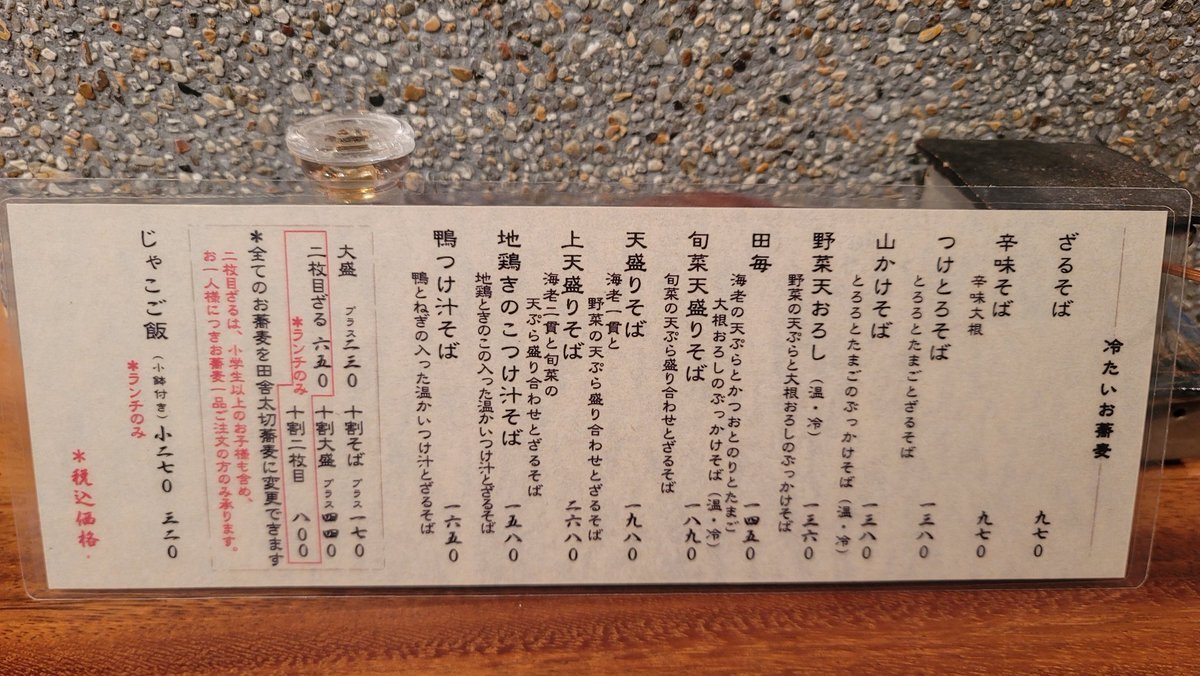 冷たいお蕎麦
ざるそば 九七〇
辛味そば 九七〇
辛味大根
つけとろそば 一三八〇
とろろとたまごとざるそば
山かけそば 一三八〇
とろろとたまごのぶっかけそば(温・冷)
野菜天おろし(温・冷) 一三六〇
野菜の天ぷらと大根おろしのぶっかけそば
田毎 一四五〇
海老の天ぷらとかつおとのりとたまご
大根おろしのぶっかけそば(温・冷)
旬菜天盛りそば 一八九〇
旬菜の天ぷら盛り合わせとざるそば
天盛りそば 一九八〇
海老一貫と
野菜の天ぷら盛り合わせとざるそば
上天盛りそば 二六八〇
海老二貫と旬菜の
天ぷら盛り合わせとざるそば
地鶏きのこつけ汁そば 一五八〇
地鶏ときのこの入った温かいつけ汁とざるそば
鴨つけ汁そば 一六五〇
鴨とねぎの入った温かいつけ汁とざるそば
大盛 プラス二三〇 十割そば プラス一七〇
二枚目ざる 六五〇 十割大盛 プラス四四〇
*ランチのみ 十割二枚目 八〇〇
*全てのお蕎麦を田舎太切蕎麦に変更できます
二枚目ざるは、小学生以上のお子様も含め、
お一人様につきお蕎麦一品ご注文の方のみ承ります。
じゃこご飯(小鉢付き)小二七〇 三二〇
*ランチのみ
*税込価格.